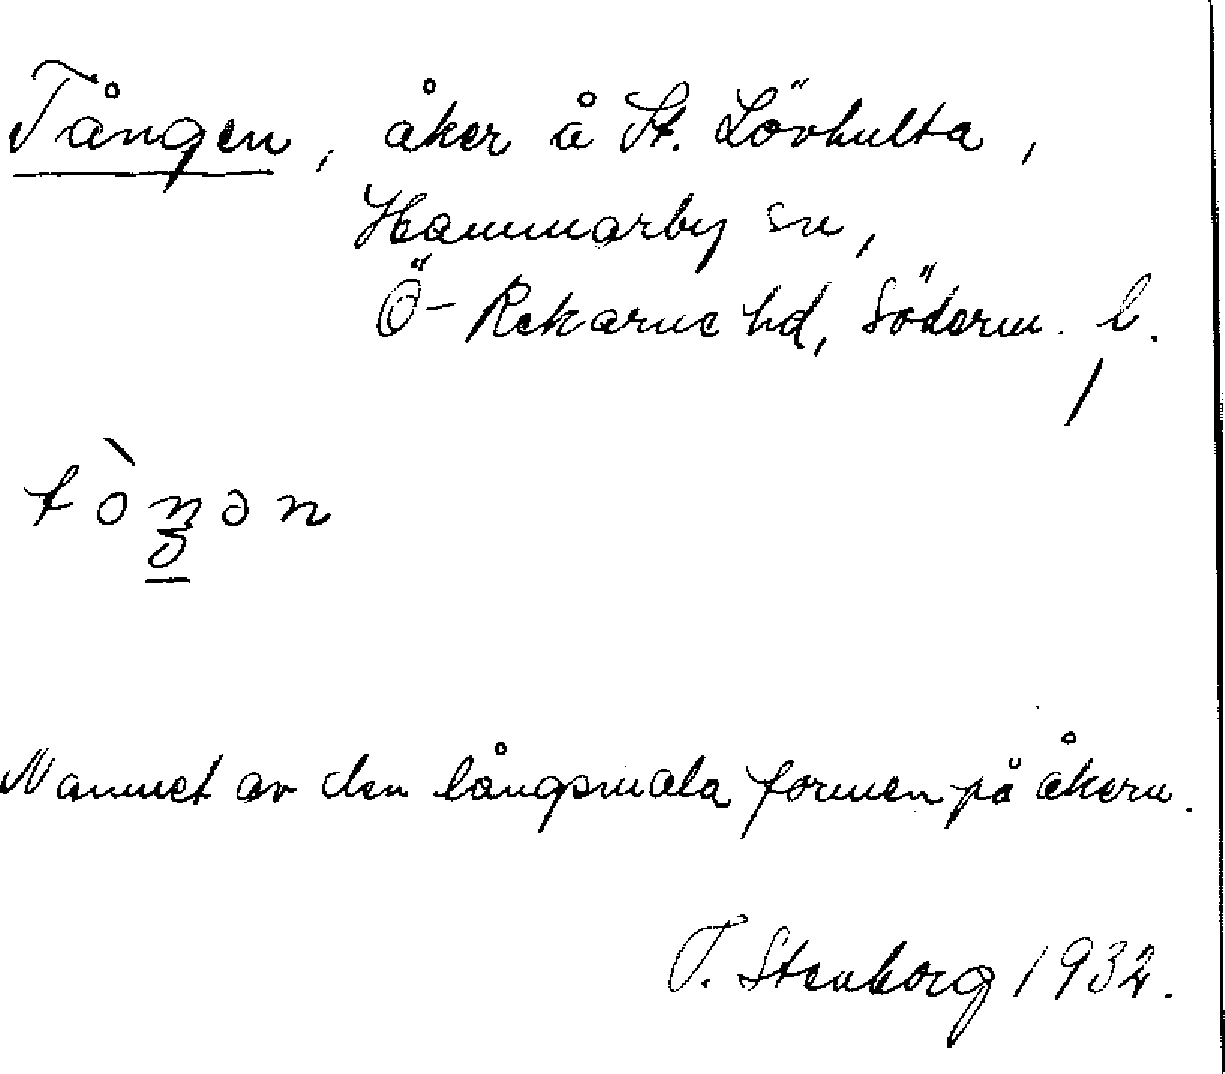 Tången, åker å St. Lövhulta,
Hammarby sn,
Ö-Rekarne hd, Söderm. l.
tòŋən
Namnet av den långsmala formen på åkern.
T. Stenborg 1932.